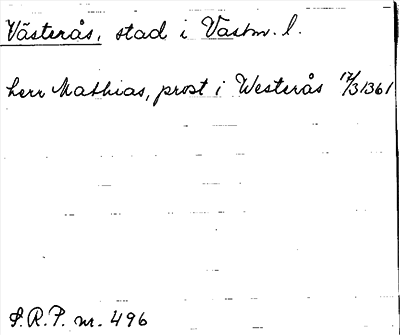 Västerås, stad i Västm. l.
herr Mathias, prost i Westerås 17/3 1361
S.R.P. nr. 496